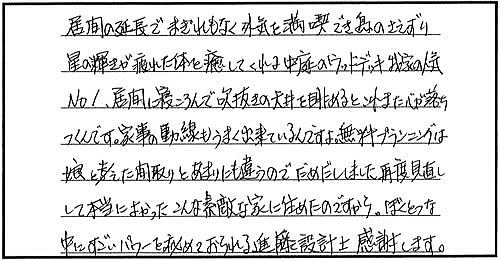 居間の延長でまぎれもなく外気を満喫でき鳥のさえずり
星の輝きが疲れた体を癒してくれる中庭のウッドデッキ我家の人気
No1、居間に寝ころんで吹抜きの天井を眺めるとこれまた心が落ち
つくんです。家事の動線もうまく出来ているんですよ。無料プランニングは
娘と考えた間取りとあまりにも違うのでだめだししました。再度見直し
して本当によかったこんな素敵な家に住めたのですから。ぼくとつな
中にすごいパワーを秘めておられる進藤設計士感謝します。